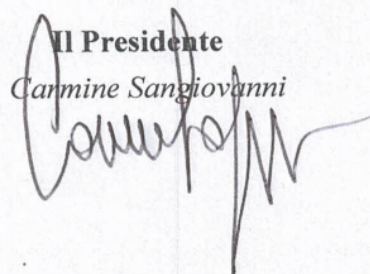 Il Presidente
Carmine Sangiovanni